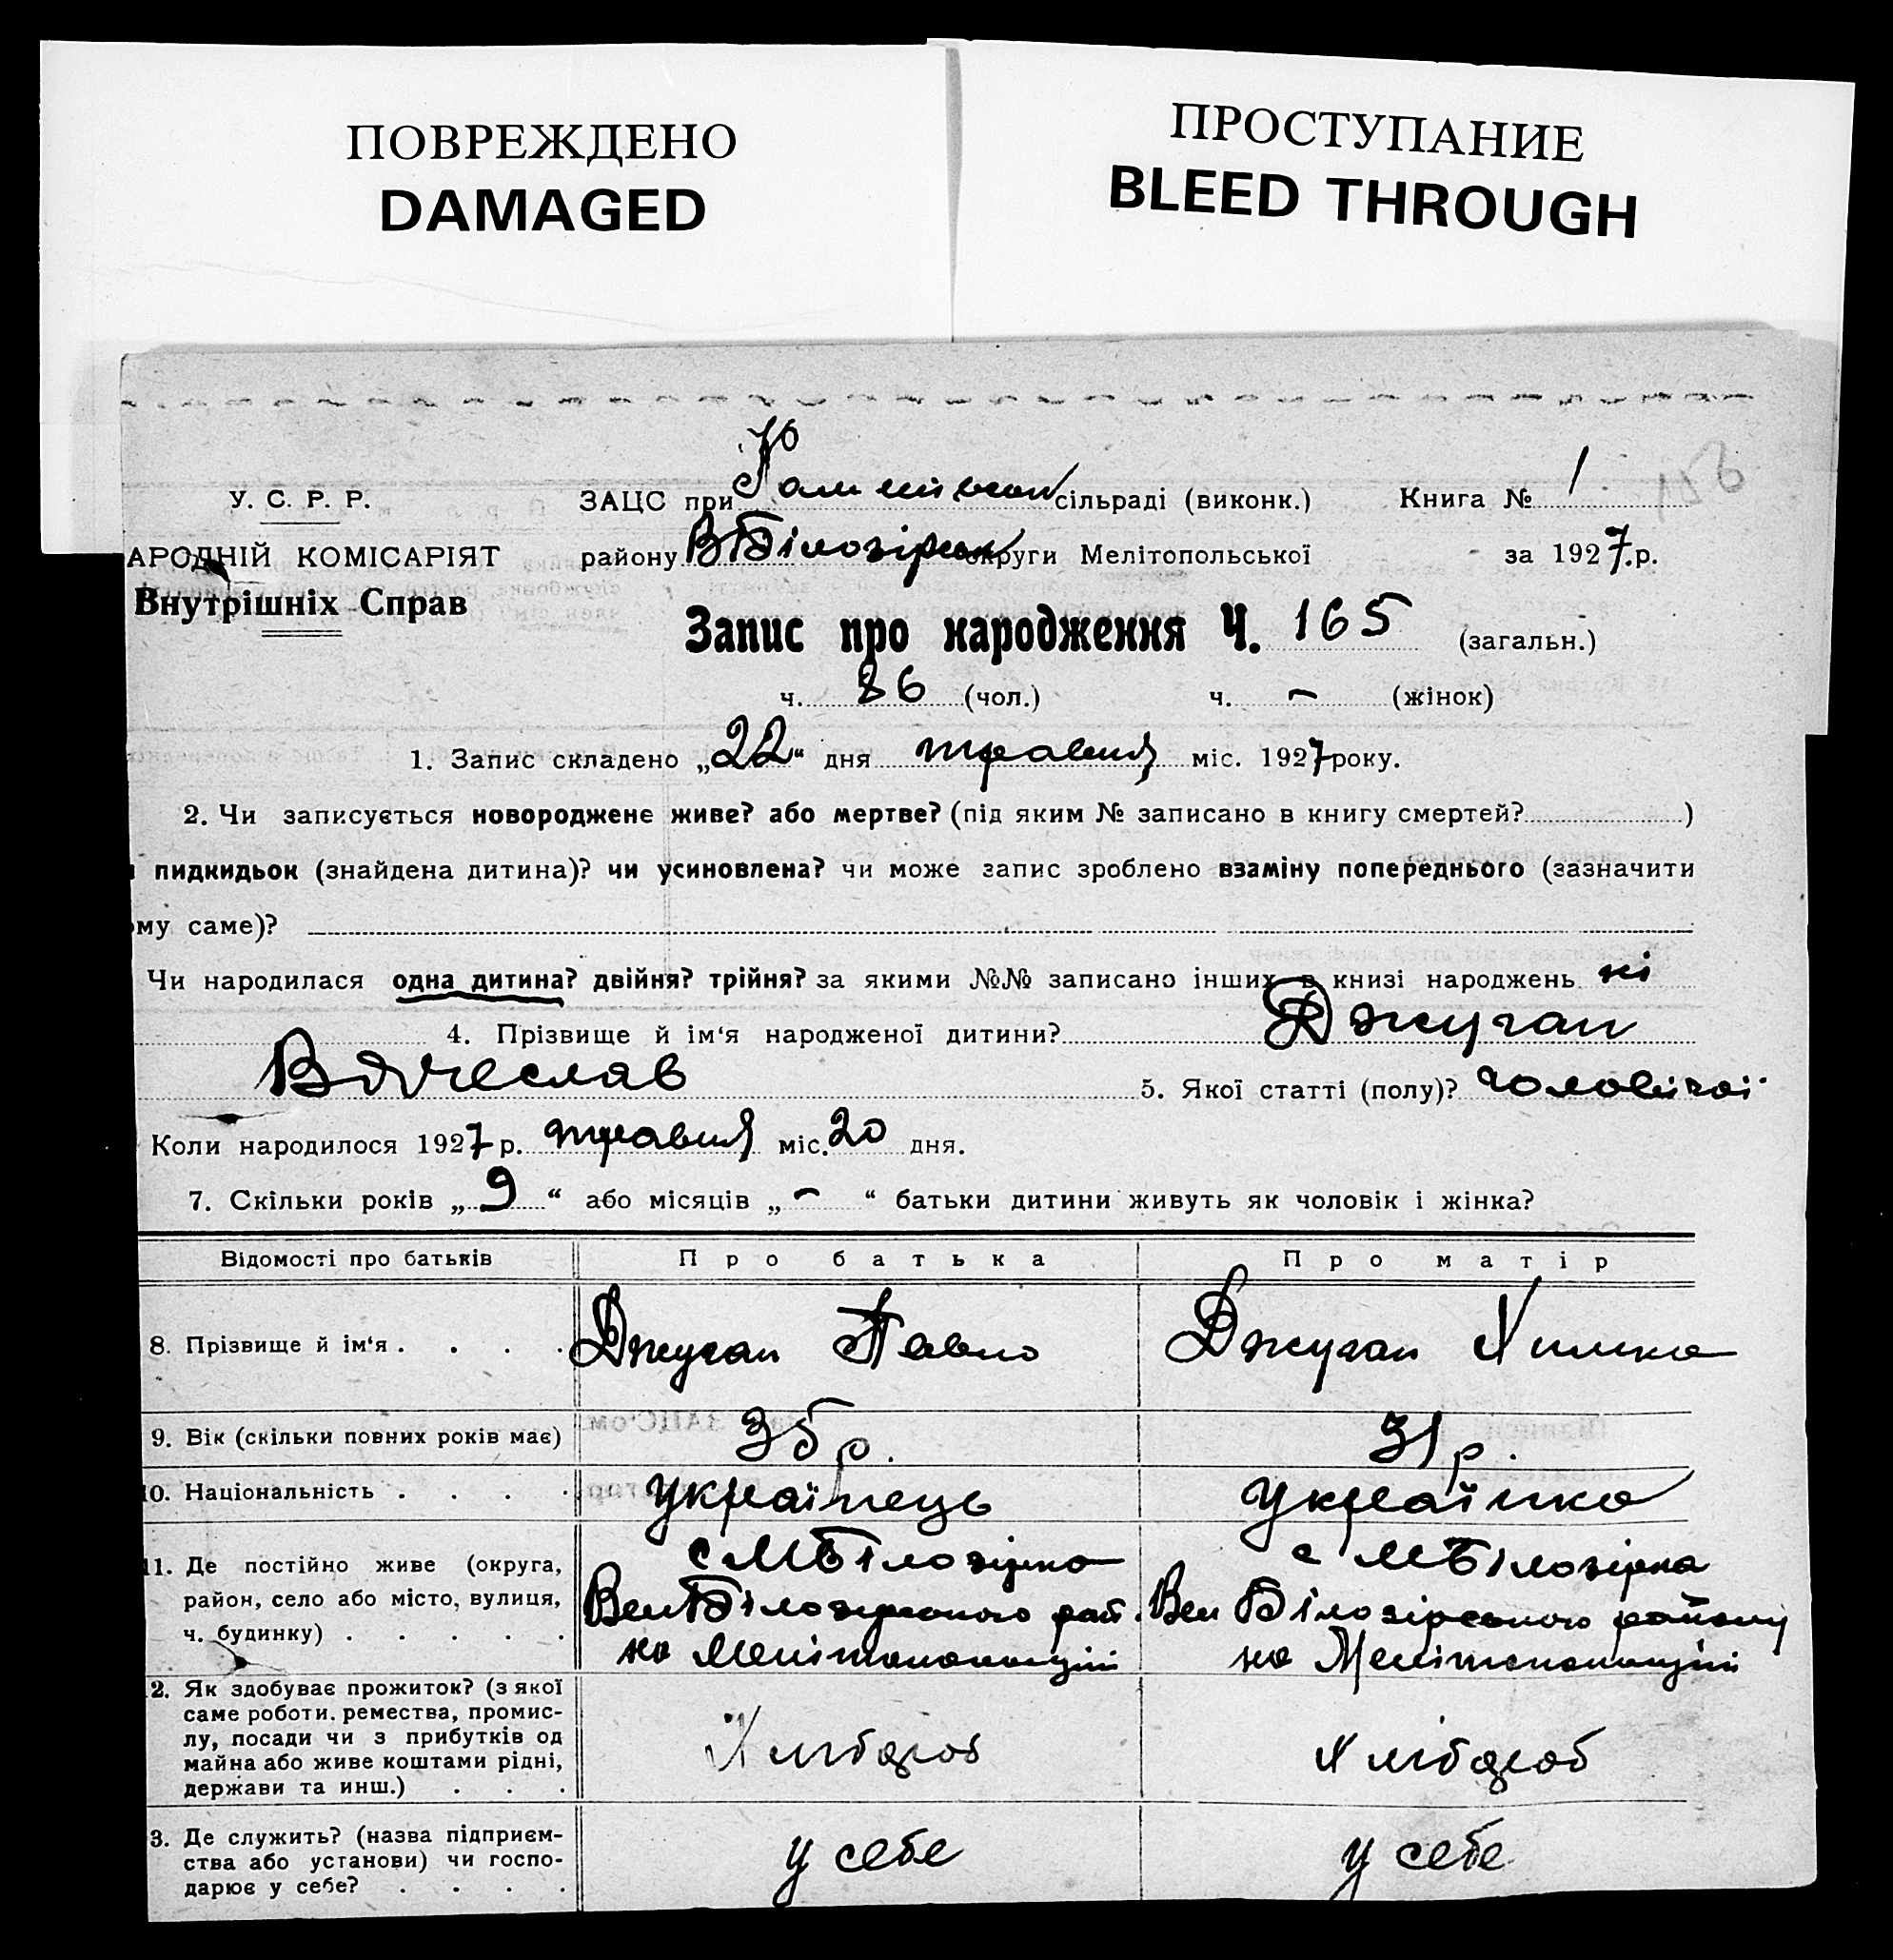 ПОВРЕЖДЕНО
DAMAGED
ПРОСТУПАНИЕ
BLEED THROUGH
У. С. Р. Р.
АРОДНІЙ КОМІСАРІЯТ
Внутрішніх Справ
ЗАЦС при сільраді (виконк.) Книга № 1
району В Білозірськ округи Мелітопольської за 1927 р.
Запис про народження Ч. 165 (загальн.)
ч. 86 (чол.) ч. – (жінок)
1. Запис складено „22“ дня травня міс. 1927 року.
2. Чи записується новороджене живе? або мертве? (під яким № записано в книгу смертей? )
пидкидьок (знайдена дитина)? чи усиновлена? чи може запис зроблено взаміну попереднього (зазначити
ому саме)?
Чи народилася одна дитина? двійня? трійня? за якими №№ записано інших в книзі народжень ні
4. Прізвище й ім‘я народженої дитини? Джуган
Вячеслав 5. Якої статті (полу)? чоловічої
Коли народилося 1927 р. травня міс. 20 дня.
7. Скільки років „9“ або місяців „–“ батьки дитини живуть як чоловік і жінка?
Відомості про батьків Про батька Про матір
8. Прізвище й ім‘я . . . . Джуган Павло Джуган Химка
9. Вік (скільки повних років має) 35 р. 31 р.
10. Національність . . . . українець українка
11. Де постійно живе (округа, с М Білозірка с М Білозірка
район, село або місто, вулиця, Вел Білозірського рай. Вел Білозірського району
ч. будинку) . . . . . на Мелітопольщині на Мелітопольщині
2. Як здобуває прожиток? (з якої
саме роботи. ремества, промис-
лу, посади чи з прибутків од
майна або живе коштами рідні, Хлібороб Хлібороб
держави та инш.) . . .
3. Де служить? (назва підприєм-
ства або установи) чи госпо- у себе у себе
дарює у себе? . . . .